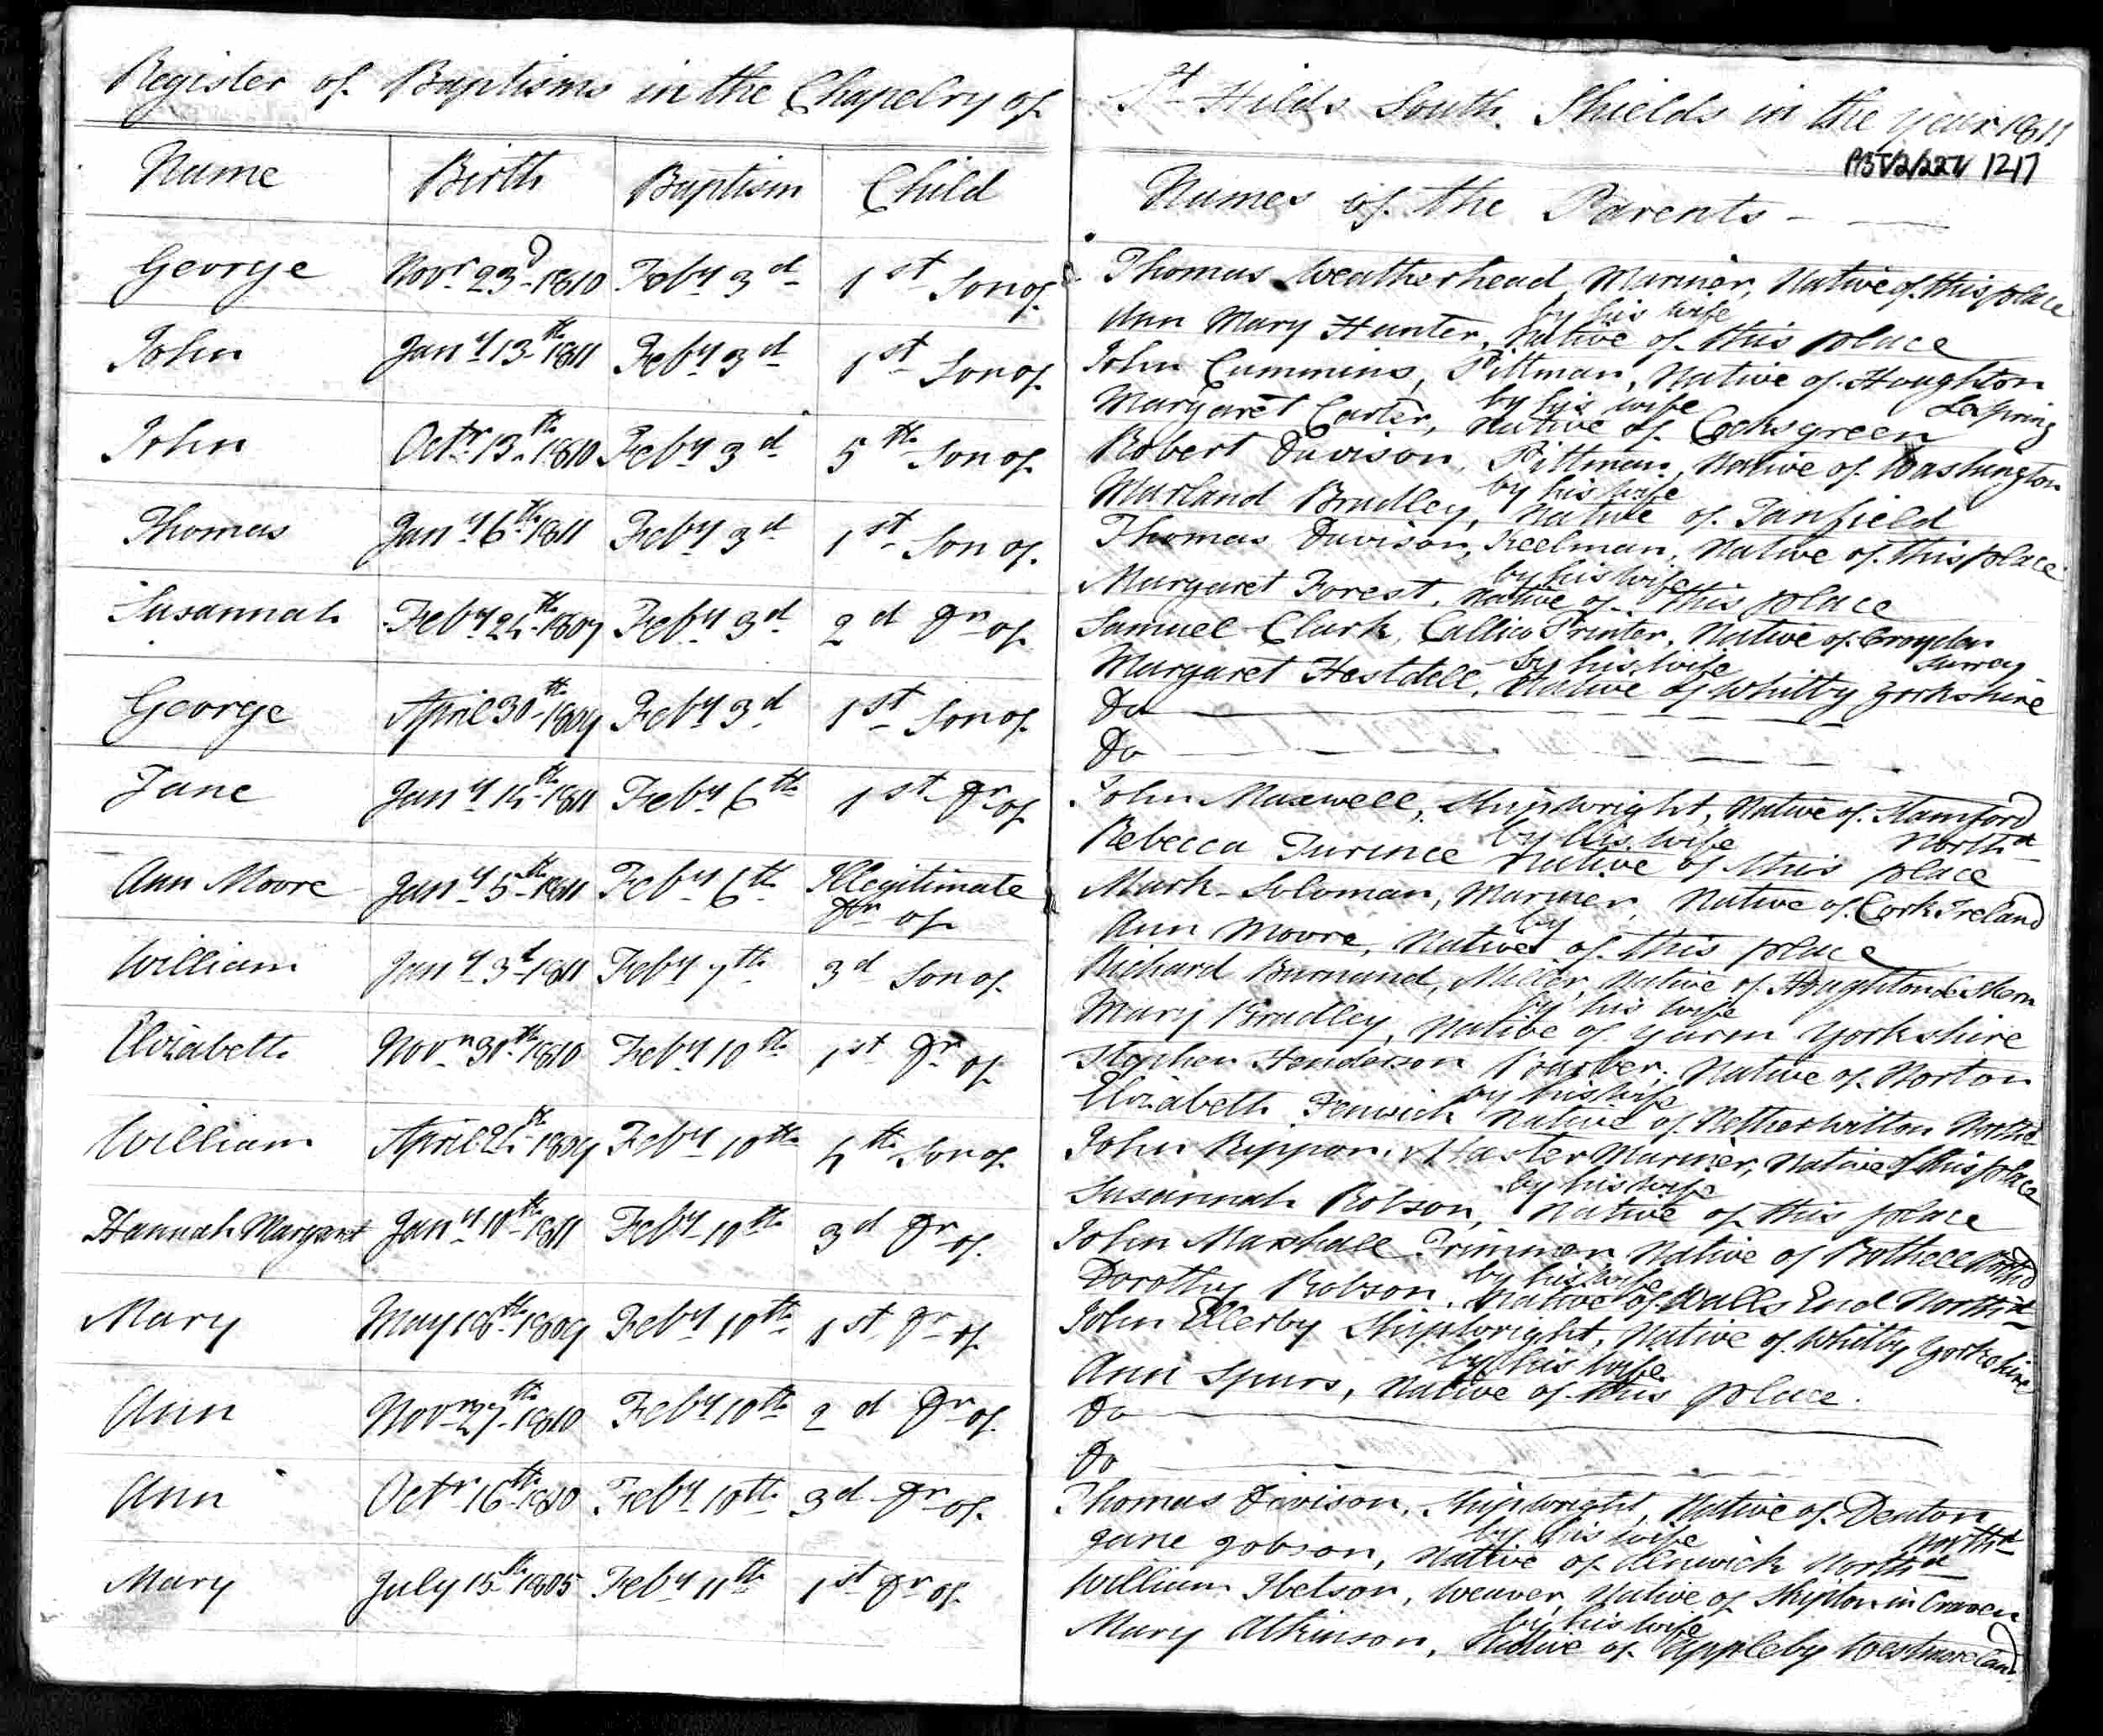 Register of Baptisms in the Chapelry of St Hilds South Shields in the year 1811
PBT/2/224 1217
Name Birth Baptism Child Names of the Parents
George Novr 23d 1810 Feby 3d 1st Son of Thomas Weatherhead, Mariner, Native of this place
by his wife
Ann Mary Hunter, Native of this place
John Jany 13th 1811 Feby 3d 1st Son of John Cummins, Pittman, Native of Houghton
Le Spring
by his wife
Margaret Carter, Native of Cocksgreen
John Octr 13th 1810 Feby 3d 5th Son of Robert Davison, Pittman, Native of Washington
by his wife
Marland Bradley, Native of Tanfield
Thomas Jany 6th 1811 Feby 3d 1st Son of Thomas Davison, Keelman, Native of this place
by his wife
Margaret Forest, Native of this place
Susannah Feby 24th 1807 Feby 3d 2d Dr of Samuel Clark, Callico Printer, Native of Croydon
Surrey
by his wife
Margaret Hestdell, Native of Whitby Yorkshire
George April 30th 1809 Feby 3d 1st Son of Do
Do
Jane Jany 14th 1811 Feby 6th 1st Dr of John Maxwell, Shipwright, Native of Stamford
Northd
by his wife
Rebecca Turince Native of this place
Ann Moore Jany 5th 1811 Feby 6th Illegitimate
Dr of Mark Soloman, Mariner, Native of Cork Ireland
by
Ann Moore, Native of this place
William Jany 3d 1811 Feby 7th 3d Son of Richard Burnand, Miller, Native of Houghton le Skern
by his wife
Mary Bradley, Native of Yarm Yorkshire
Elizabeth Novr 30th 1810 Feby 10th 1st Dr of Stephen Henderson Barber, Native of Norton
by his wife
Elizabeth Fenwick Native of Netherwitton Northd
William April 24th 1809 Feby 10th 4th Son of John Rippon, Master Mariner, Native of this place
by his wife
Susannah Robson, Native of this place
Hannah Margaret Jany 10th 1811 Feby 10th 3d Dr of John Marshall Trimmer Native of Bothell Northd
by his wife
Dorothy Robson, Native of Walls End Northd
Mary May 18th 1809 Feby 10th 1st Dr of John Ellerby Shipwright, Native of Whitby Yorkshire
by his wife
Ann Spurs, Native of this place.
Ann Novr 27th 1810 Feby 10th 2d Dr of Do
Do
Ann Octr 16th 1810 Feby 10th 3d Dr of Thomas Davison, Shipwright, Native of Denton
Northd
by his wife
Jane Jobson, Native of Alnwick Northd
Mary July 15th 1805 Feby 11th 1st Dr of William Ibetson, Weaver, Native of Skipton in Craven
by his wife
Mary Atkinson, Native of Appleby Westmoreland